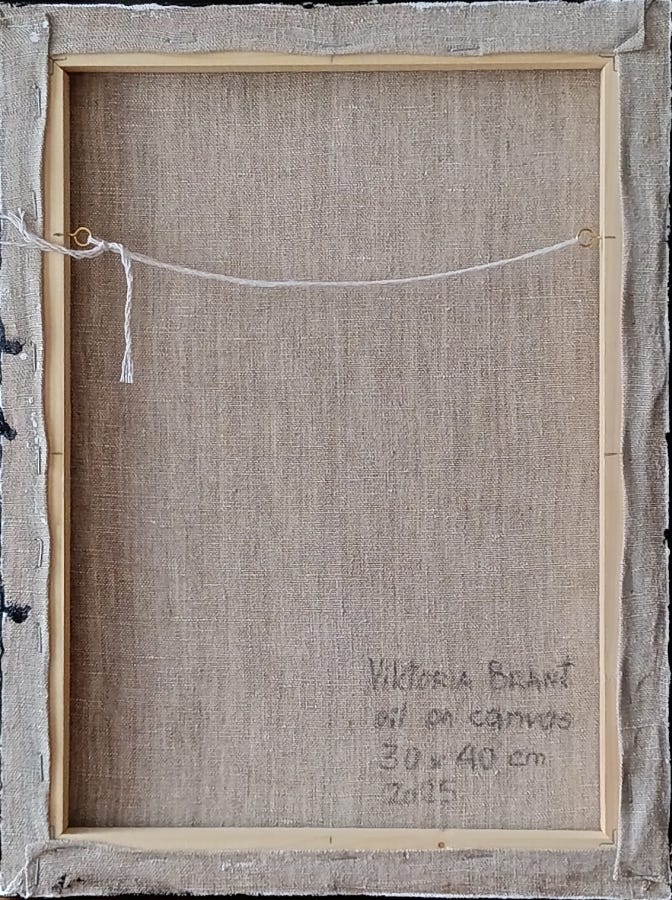 Viktoria Brant
oil on canvas
30 x 40 cm
2025